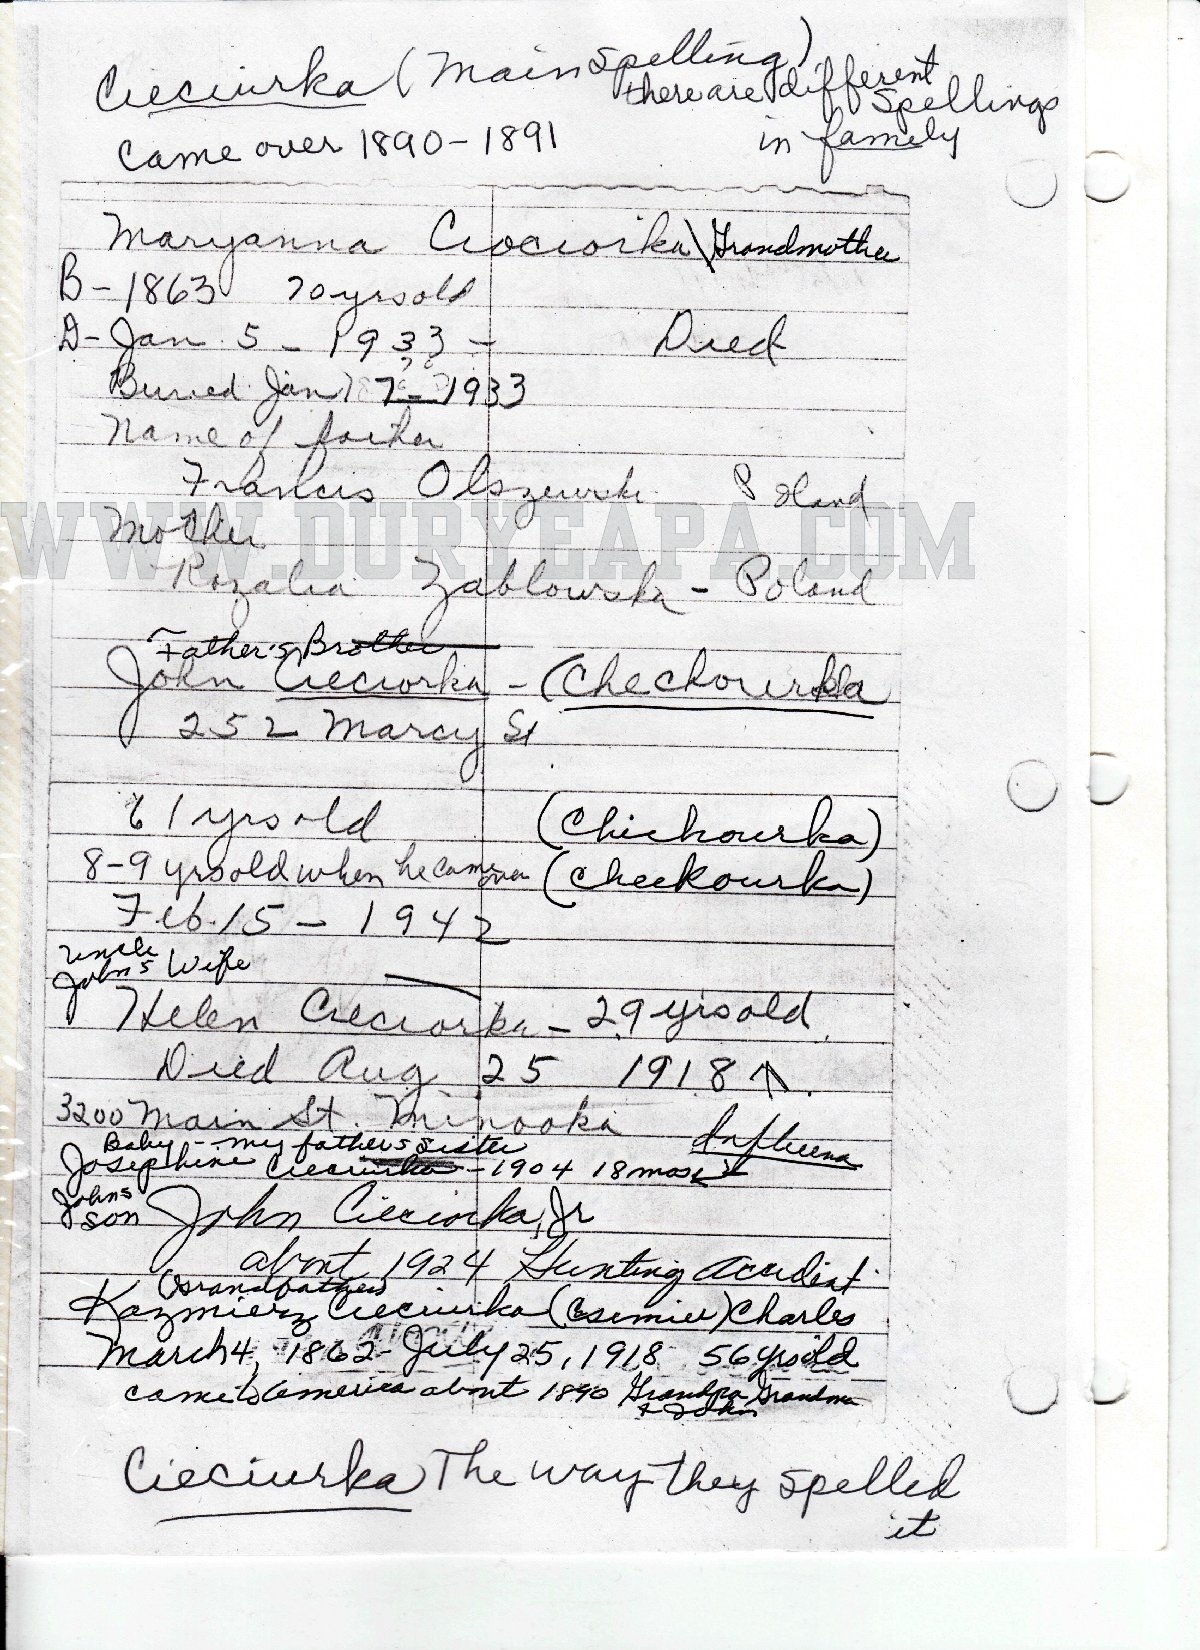 Cieciurka (Main Spelling)
there are different
spellings
in family
Came over 1890-1891
Maryanna Ciocioika \ Grandmother
B - 1863 70 yrs old
D- Jan 5 - 1933 - Died
Buried Jan 7 - 1933
Name of father
Francis Olszewski Poland
WWW.DURYEAPA.COM
Mother
Rozalia Zablowska - Poland
Father's Brother
John Cieciorka - (Checkourka
252 Marcy St
61 yrs old (Chickourka)
8-9 yrs old when he came over (Checkourka)
Feb. 15 - 1942
Uncle
John's Wife
Helen Cieciorka - 29 yrs old
Died Aug 25 1918
3200 Main St. Minooka
Baby - my father's sister
Josephine Cieciurka - 1904 18 mos
Johns
son John Cieciorka, Jr
about 1924 Hunting Accident
(Grandfather)
Kazmierz Cieciurka (Casimier) Charles
March 4, 1862 - July 25, 1918 56 yrs old
came to America about 1890 Grandpa Grandma
+ John
Cieciurka The way they spelled
it